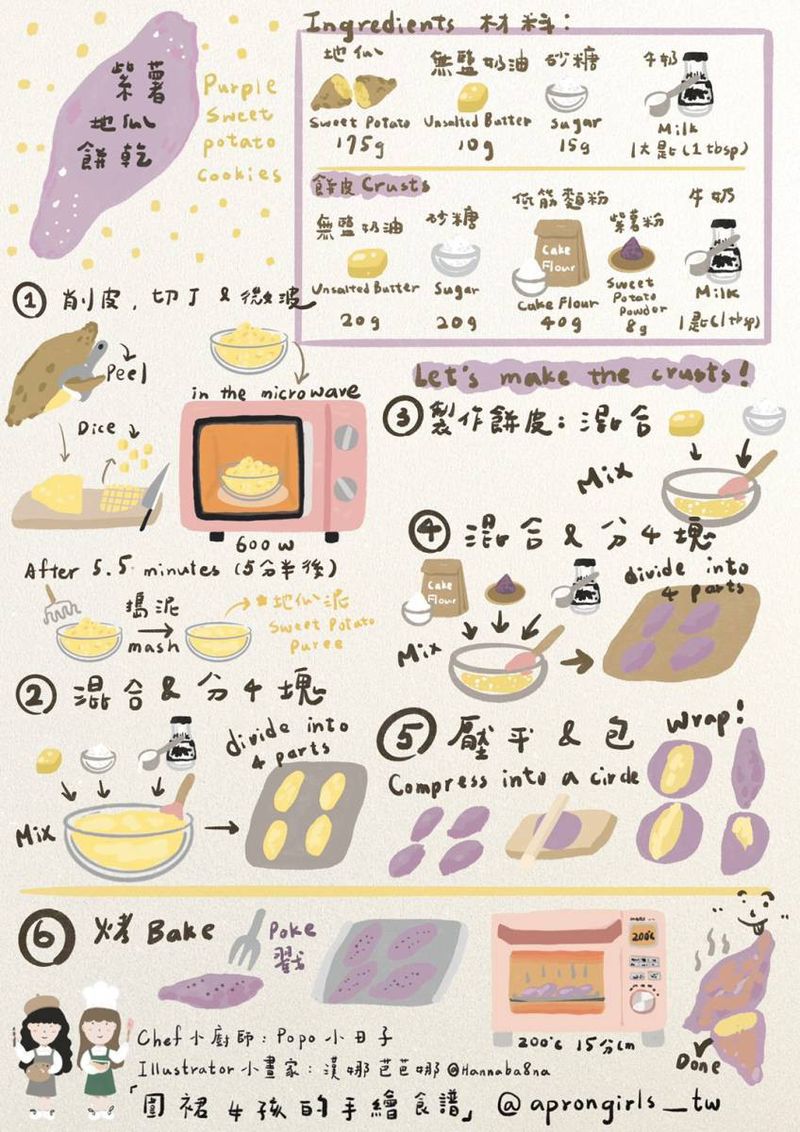 紫薯
地瓜
餅乾
Purple
Sweet
potato
cookies
Ingredients 材料:
地瓜
Sweet Potato
175g
無鹽奶油
Unsalted Butter
10g
砂糖
Sugar
15g
牛奶
Milk
1大匙(1 tbsp)
餅皮 Crusts
無鹽奶油
Unsalted Butter
20g
砂糖
Sugar
20g
低筋麵粉
Cake
Flour
Cake Flour
40g
紫薯粉
Sweet
Potato
Powder
8g
牛奶
Milk
1匙(1tbsp)
① 削皮,切丁 & 微波
Peel
Dice
in the microwave
600w
After 5.5 minutes (5分半後)
搗泥
mash
地瓜泥
Sweet Potato
Puree
② 混合 & 分4塊
Mix
divide into
4 parts
Let's make the crusts!
③ 製作餅皮: 混合
Mix
④ 混合 & 分4塊
Cake
Flour
Mix
divide into
4 parts
⑤ 壓平 & 包 Wrap!
Compress into a circle
⑥ 烤 Bake
Poke
戳
200℃
200℃ 15分鐘
Done
Chef 小廚師: Popo 小日子
Illustrator 小畫家: 漢娜芭芭娜 @Hannaba8na
「圍裙女孩的手繪食譜」 @aprongirls_tw